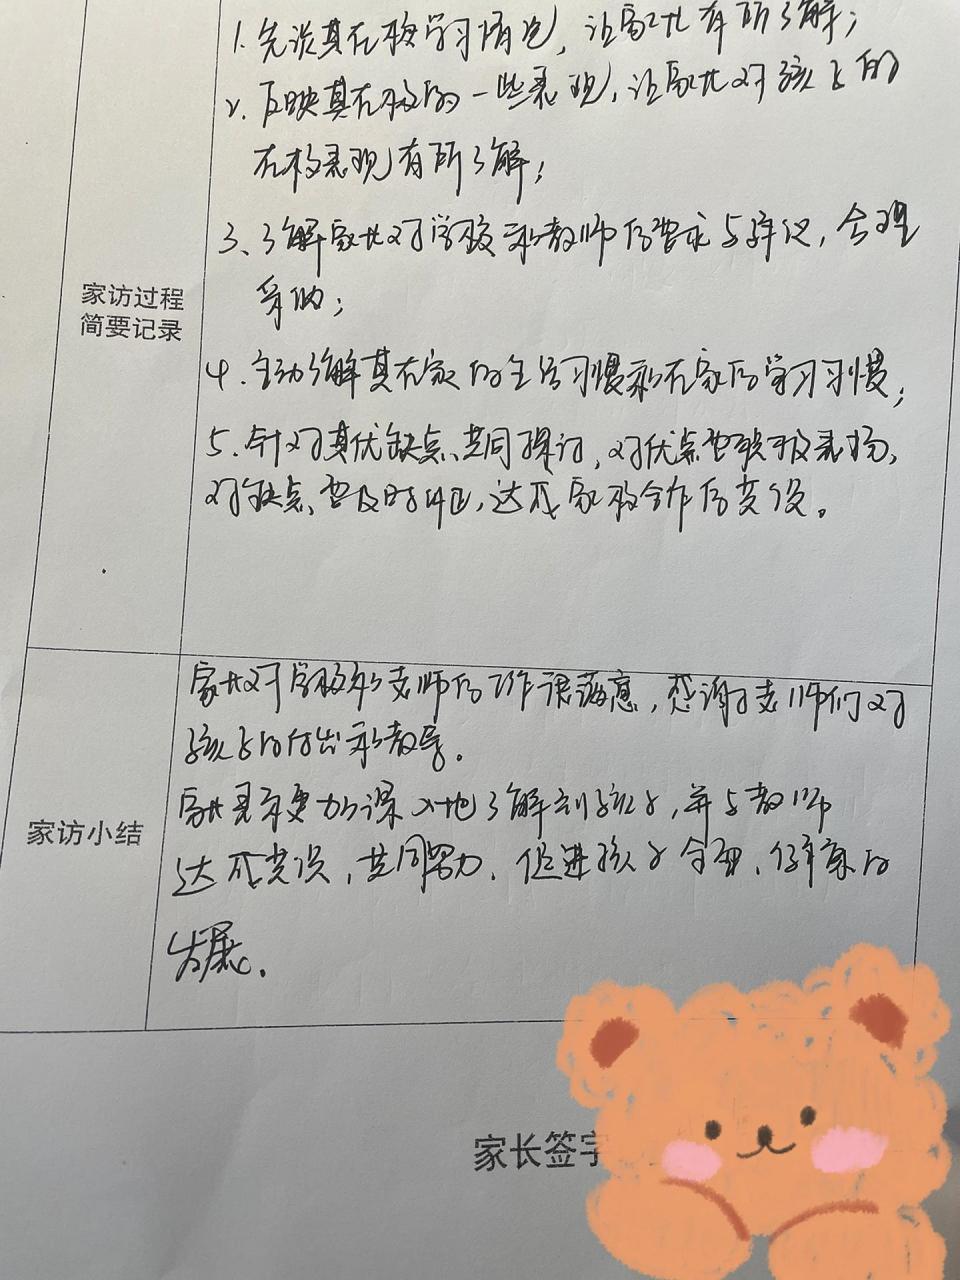 1. 先谈其在校学习情况，让家长有所了解；
2. 反映其在校的一些表现，让家长对孩子的
在校表现有所了解；
3、了解家长对学校和教师的要求与建议，合理
采纳；
家访过程
简要记录
4. 主动了解其在家的生活习惯和在家的学习习惯；
5. 针对其优缺点、共同探讨，对优点要积极表扬，
对缺点、要及时纠正，达成家校合作的共识。
家长对学校和老师的工作很满意，感谢老师们对
孩子的付出和教导。
家长表示更加深入地了解到孩子，并与教师
家访小结
达成共识，共同努力，促进孩子全面、健康的
发展。
家长签字